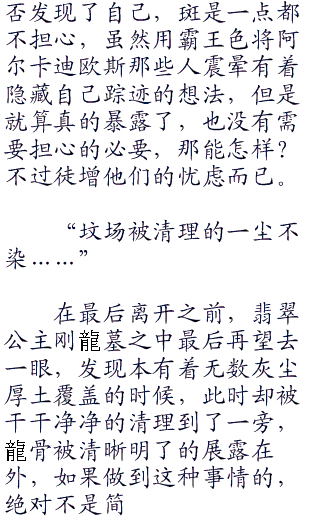 否发现了自己，斑是一点都
不担心，虽然用霸王色将阿
尔卡迪欧斯那些人震晕有着
隐藏自己踪迹的想法，但是
就算真的暴露了，也没有需
要担心的必要，那能怎样？
不过徒增他们的忧虑而已。
“坟场被清理的一尘不
染……”
在最后离开之前，翡翠
公主刚龍墓之中最后再望去
一眼，发现本有着无数灰尘
厚土覆盖的时候，此时却被
干干净净的清理到了一旁，
龍骨被清晰明了的展露在
外，如果做到这种事情的，
绝对不是简